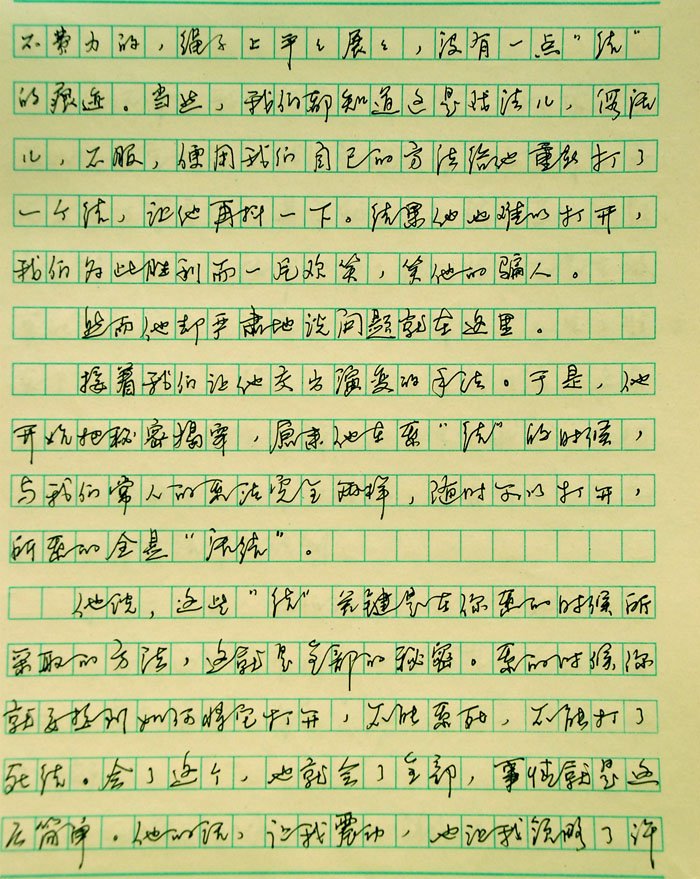 不费力的，绳子上平平展展，没有一点“结”
的痕迹。当然，我们都知道这是戏法儿，
儿，不服，便用我们自己的方法给他重新打了
一个结，让他再抖一下。结果他也难以打开，
我们为此胜利而一片欢笑，笑他的骗人。
然而他却严肃地说问题就在这里。
接着我们让他交出演变的手法。于是，他
开始把秘密揭穿，原来他在系“结”的时候，
与我们常人的系法完全两样，随时可以打开，
所系的全是“活结”。
他说，这些“结”关键是在你系的时候所
采取的方法，这就是全部的秘密。系的时候你
就要想到如何将它打开，不能系死，不能打了
死结。会了这个，也就会了全部，事情就是这
么简单。他的话，让我震动，也让我领略了许